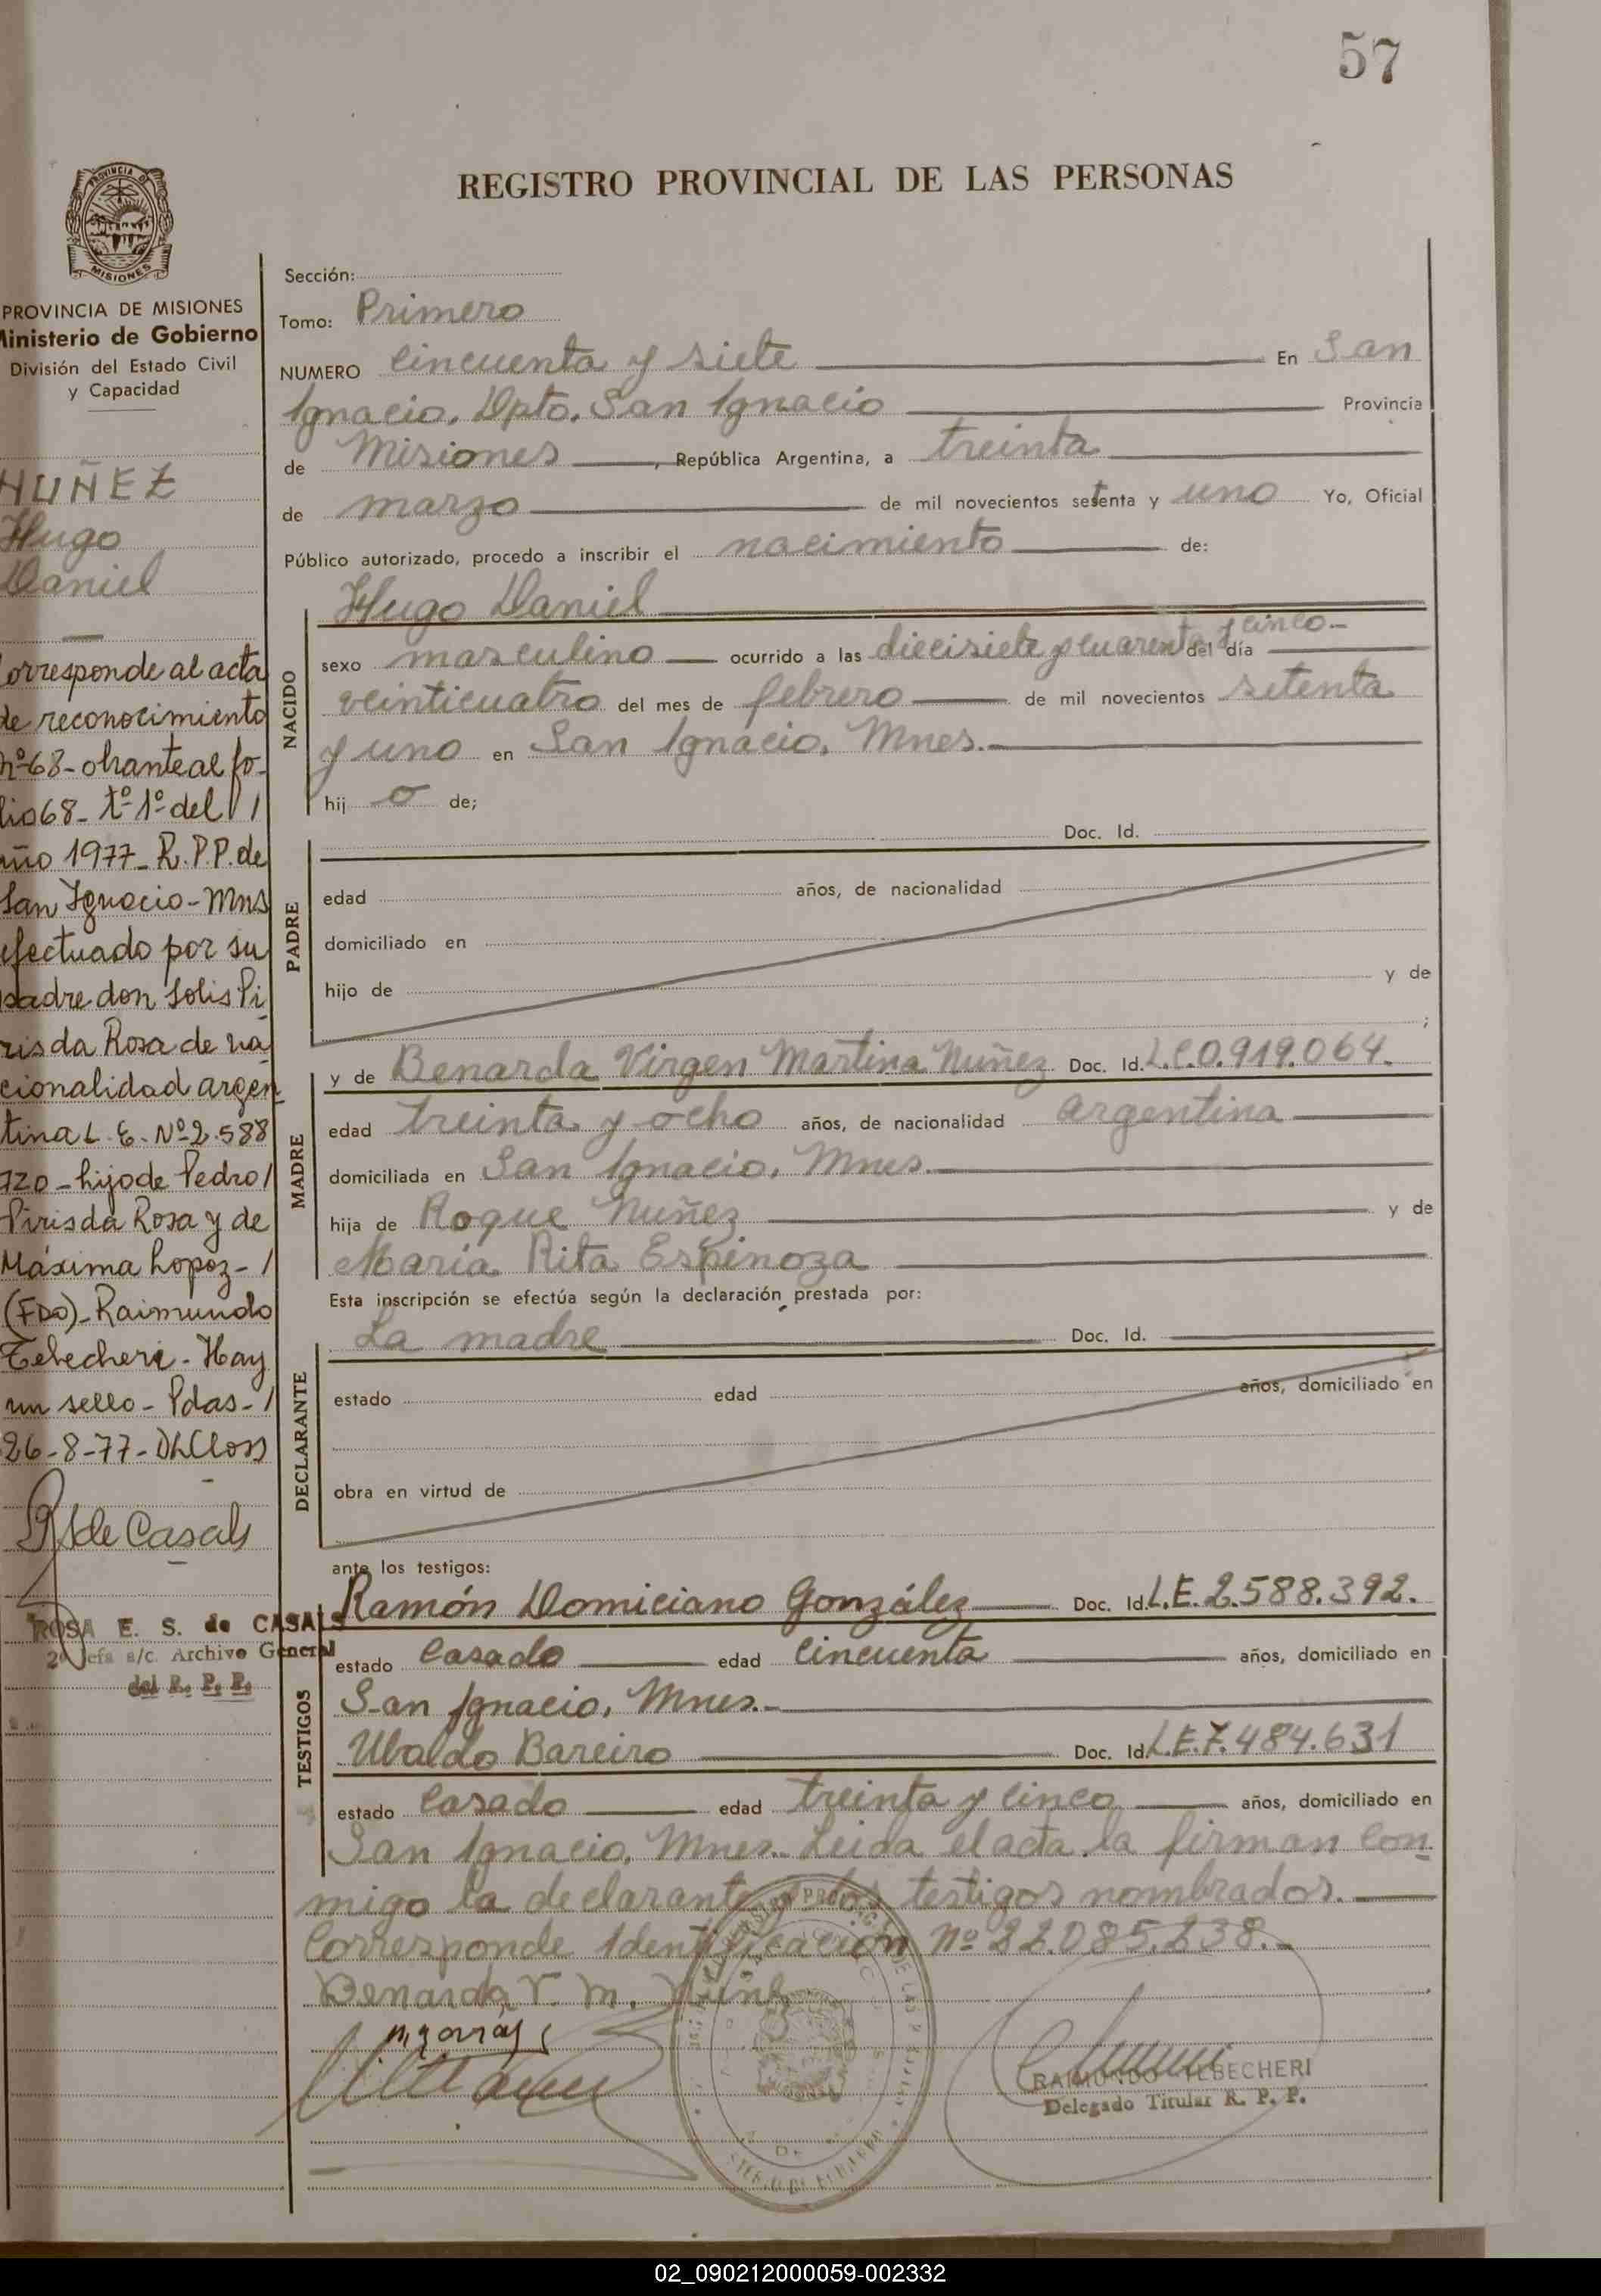 57
REGISTRO PROVINCIAL DE LAS PERSONAS
PROVINCIA DE
MISIONES
PROVINCIA DE MISIONES
Ministerio de Gobierno
División del Estado Civil
y Capacidad
NUÑEZ
Hugo
Daniel
Corresponde al acta
de reconocimiento
nº 68 - obrante al fo-
lio 68 - tº 1º del /
año 1977 - R.P.P. de
San Ignacio - Mns
efectuado por su
padre don Solis Pi-
ris da Rosa de na-
cionalidad argen
tina L. E. Nº 2.588
720 - hijo de Pedro /
Piris da Rosa y de
Máxima Lopez - /
(FDO) - Raimundo
Tebecheri - Hay
un sello - Pdas - /
26-8-77 - DhCloss
de Casals
ROSA E. S. de CASALS
2º Jefa a/c. Archivo General
del R. P. P.
Sección:
Tomo: Primero
NUMERO cincuenta y siete En San
Ignacio, Dpto. San Ignacio Provincia
de Misiones, República Argentina, a treinta
de marzo de mil novecientos setenta y uno Yo, Oficial
Público autorizado, procedo a inscribir el nacimiento de:
Hugo Daniel
NACIDO
sexo masculino ocurrido a las diecisiete y cuarenta y cinco del día
veinticuatro del mes de febrero de mil novecientos setenta
y uno en San Ignacio, Mnes.
hij o de;
PADRE
Doc. Id.
edad años, de nacionalidad
domiciliado en
hijo de y de
;
MADRE
y de Benarda Virgen Martina Nuñez Doc. Id. L.C.0.919.064.
edad treinta y ocho años, de nacionalidad argentina
domiciliada en San Ignacio, Mnes.
hija de Roque Nuñez y de
Maria Rita Espinoza
Esta inscripción se efectúa según la declaración prestada por:
La madre Doc. Id.
DECLARANTE
estado edad años, domiciliado en
obra en virtud de
ante los testigos:
TESTIGOS
Ramón Domiciano González Doc. Id. L.E.2.588.392.
estado casado edad cincuenta años, domiciliado en
San Ignacio, Mnes.-
Ubaldo Bareiro Doc. Id. L.E.7.484.631
estado casado edad treinta y cinco años, domiciliado en
San Ignacio, Mnes. Leida el acta la firman con
migo la declarante y los testigos nombrados.
Corresponde Identificación nº 22.085.238.-
Benarda V. M. Nuñez
RAIMUNDO TEBECHERI
Delegado Titular R. P. P.
02_090212000059-002332